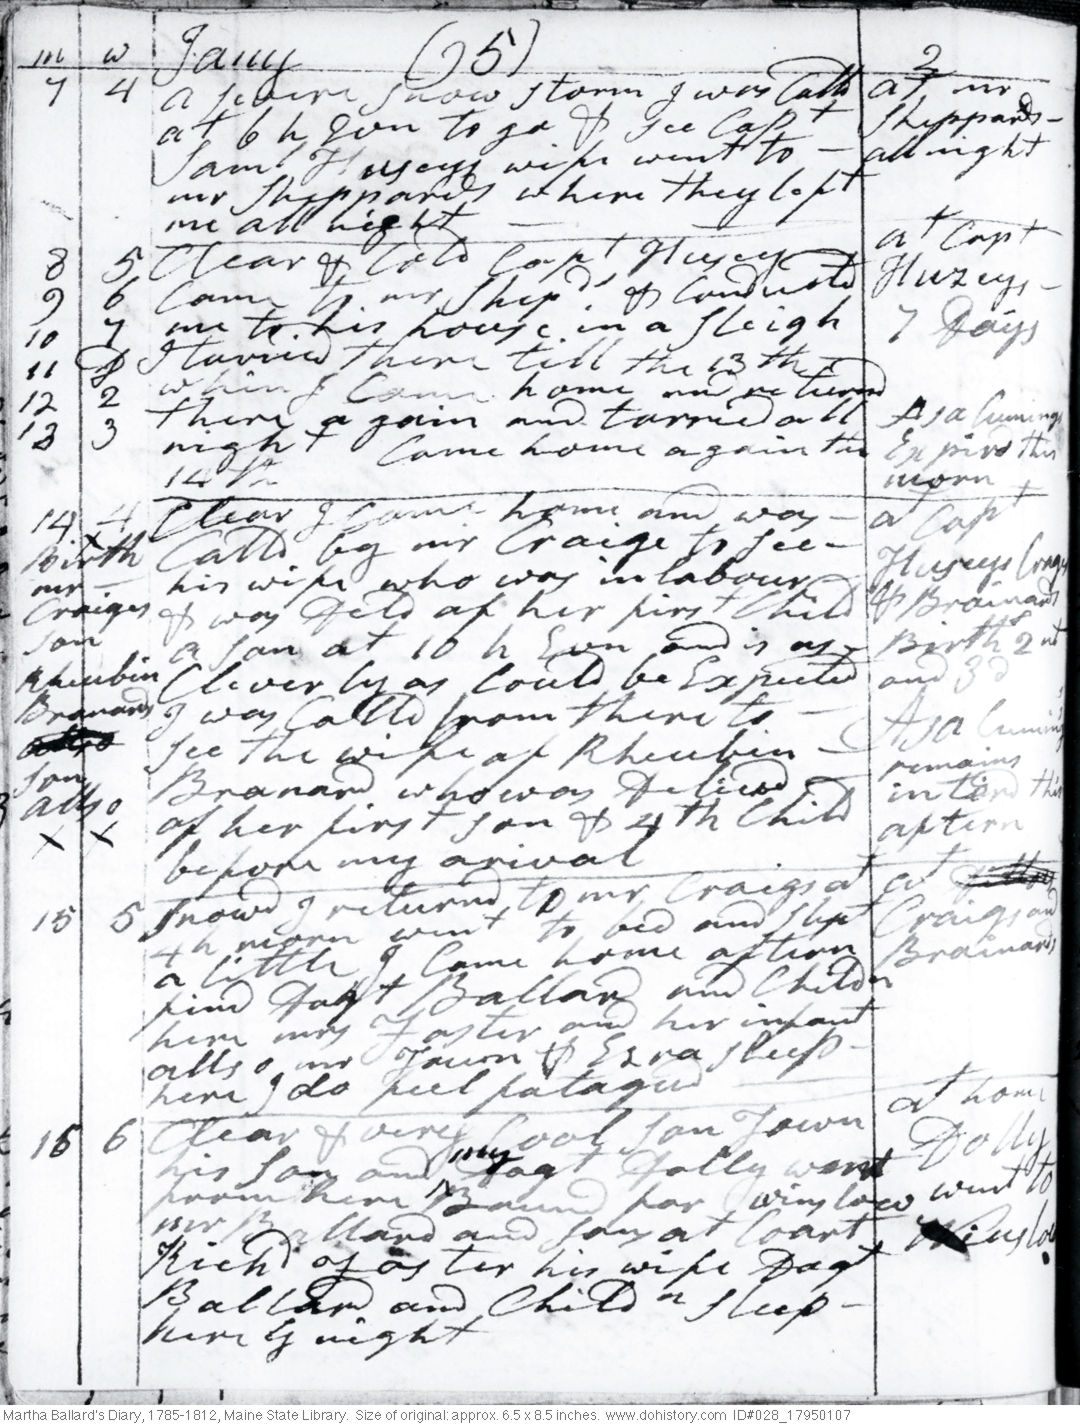 m w Jany (95) 2
7 4 a severe snow storm I was Calld at mr
at 6 h Evn to go & see Capt Sheppards -
Saml Huseys wife went to - all night
mr Sheppards where they left
me all night -
8 5 Clear & Cold Capt Husey at Capt
9 6 Came to mr Shepds & Conducted Huzeys -
10 7 me to his house in a sleigh 7 Days
11 D I tarried there till the 13th
12 2 when I Came home and returnd
13 3 there again and tarried all Asa Cumings
night Come home again the Expird this
14th morn
14 4 Clear I Came home and was - at Capt
x
Birth Calld by mr Craige to see - Huseys Cragus
mr - his wife who was in labour & Brainards
Craiges & was Deld of her first Child Births 2nt
son a son at 10 h Evn and is as - and 3d
Rheubin Cleverly as Could be Expected
Branards I was Calld from there to - Asa Cumings
see the wife of Rheubin - remains
son Branard who was Delived interd this
allso of her first son & 4th Child aftern
x x before my arival
15 5 Snowd I returnd to mr Craigs at at
4 h morn went to bed and slept Craigs and
a little I Came home aftern Brainards
find Dagt Ballard and Childn
here mrs Foster and her infant
allso mr Town & Ezra sleep -
here I do feel fatagud
16 6 Clear & very Cool son Town at home
my
his son and Dagt Dolly went Dolly
from here Bound for Winslow went to
mr Ballard and sons at Coart Winslow
Richd Foster his wife Dagt
Ballard and Childn sleep -
here to night
Martha Ballard's Diary, 1785-1812, Maine State Library. Size of original: approx. 6.5 x 8.5 inches. www.dohistory.com ID#028_17950107